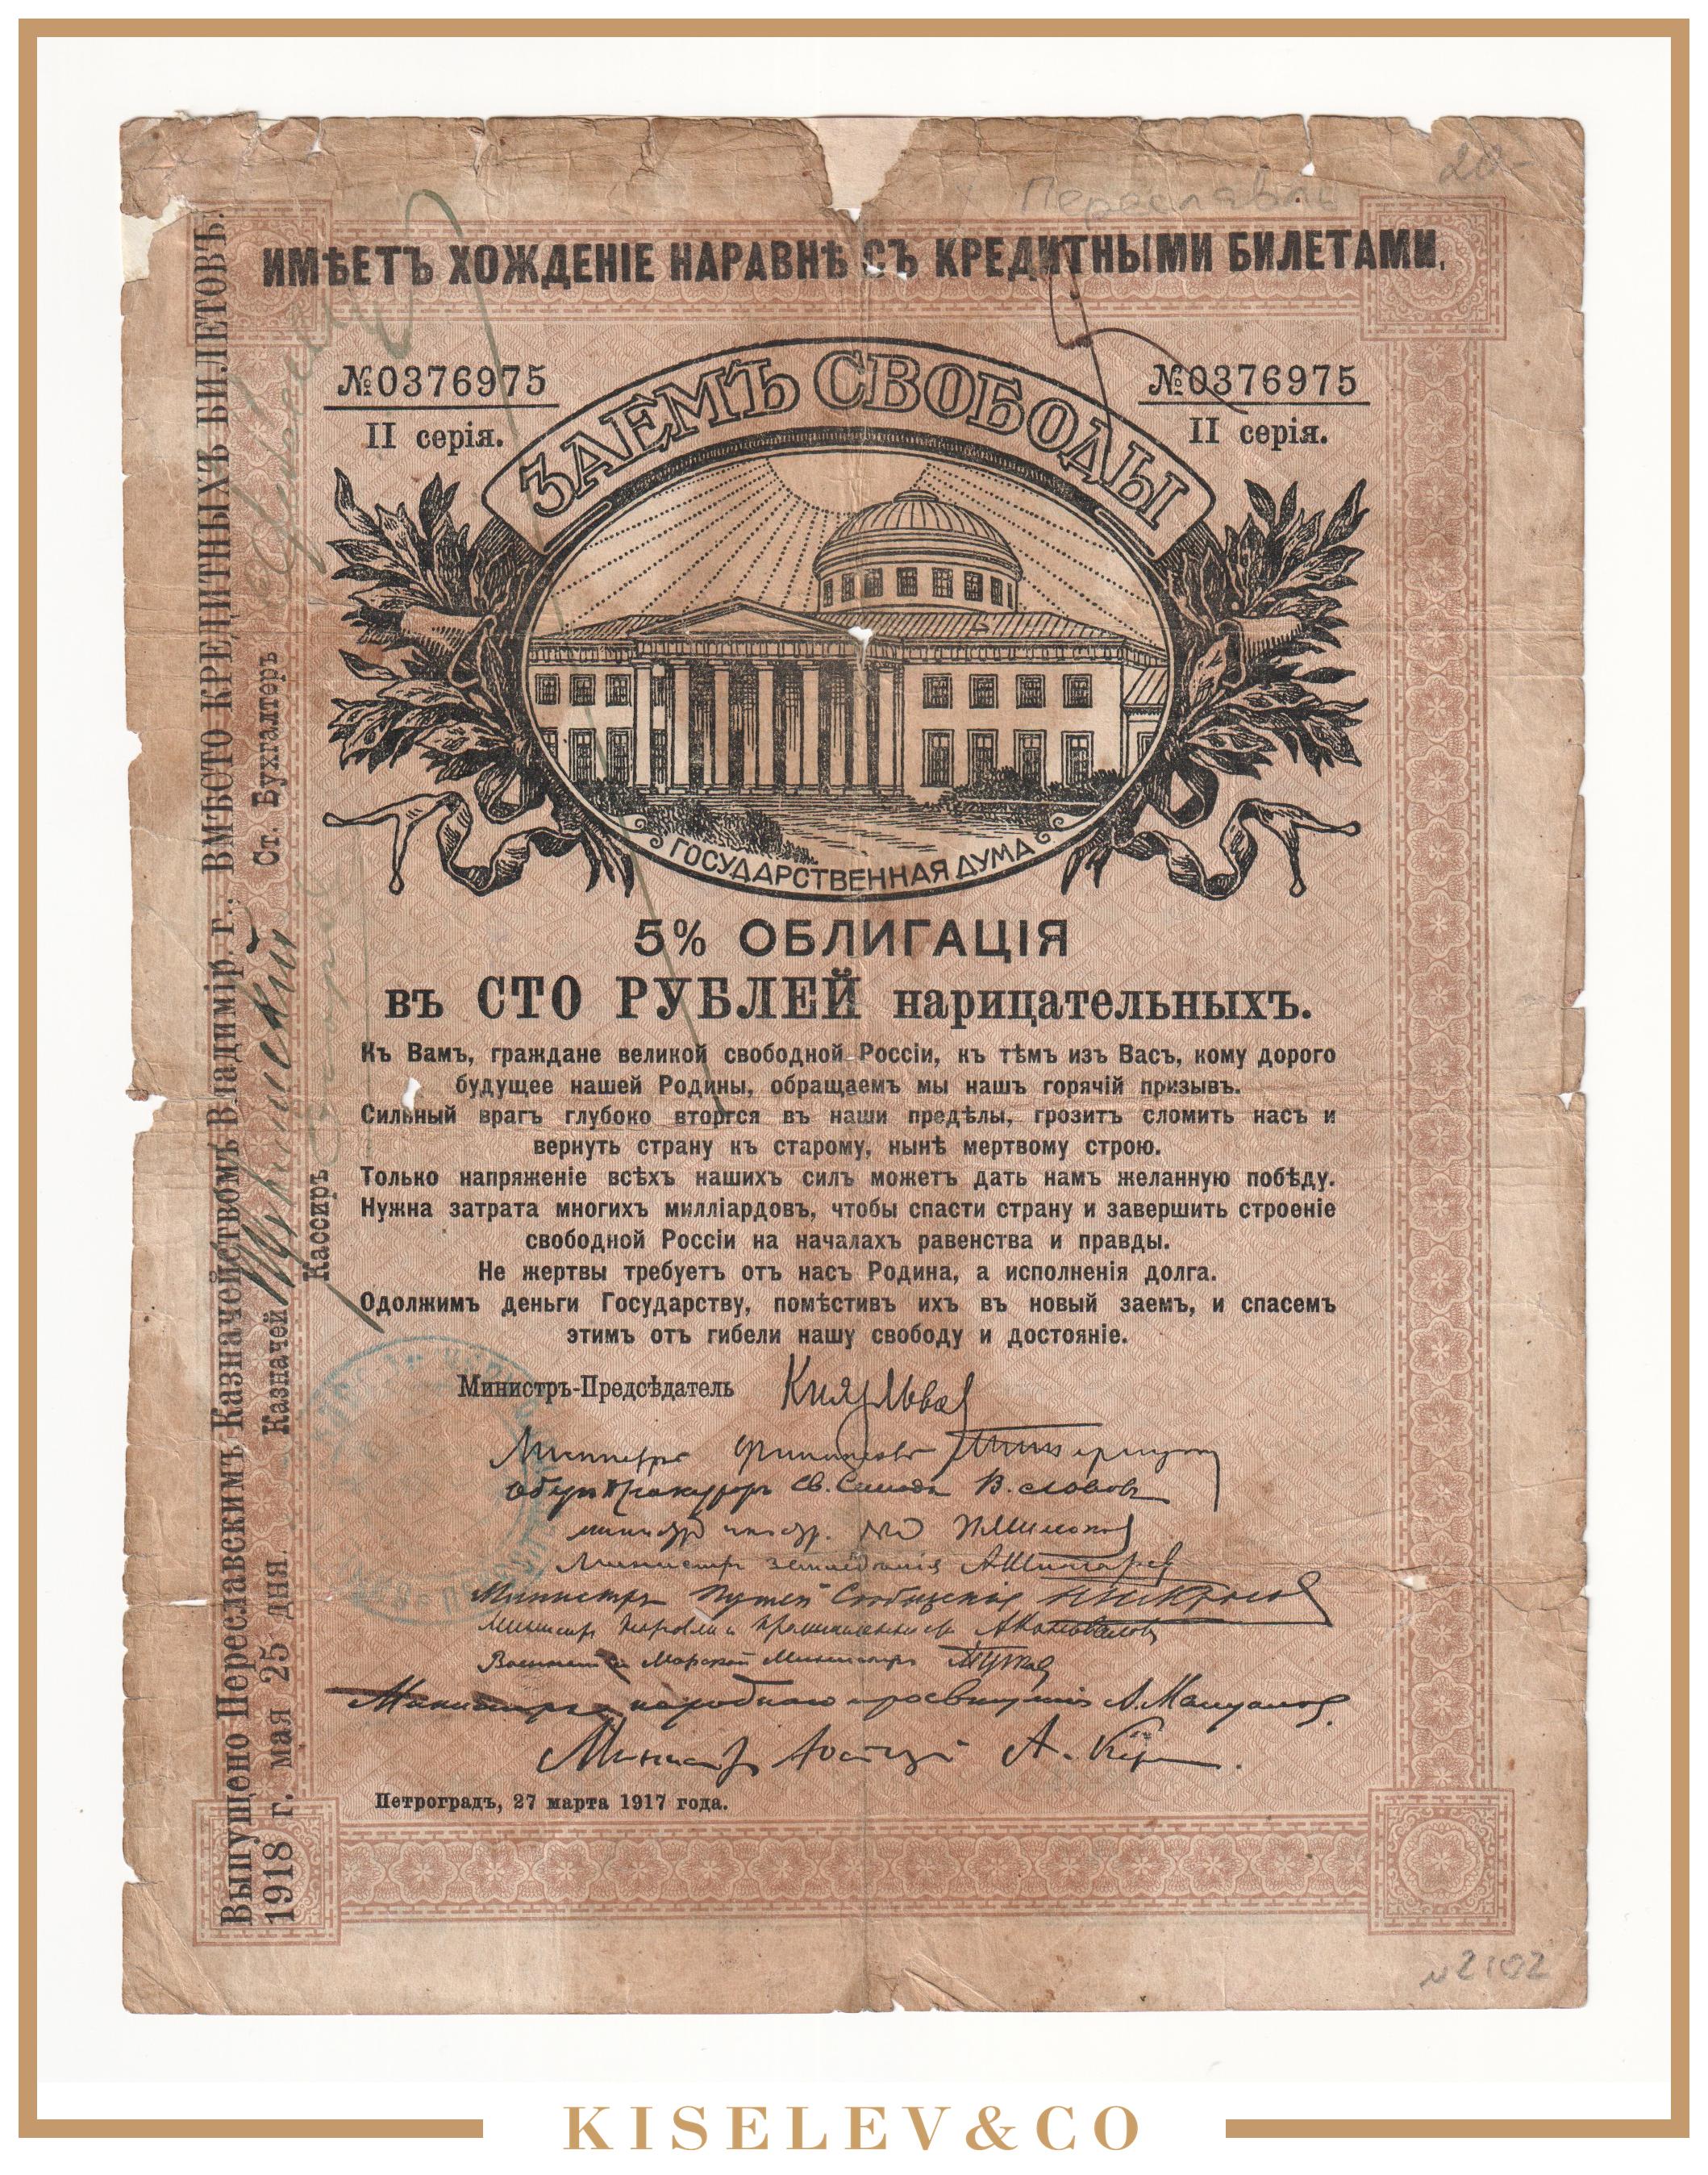 Переславль
ИМѢЕТЪ ХОЖДЕНІЕ НАРАВНѢ СЪ КРЕДИТНЫМИ БИЛЕТАМИ.
№0376975
II серія.
№0376975
II серія.
ЗАЕМЪ СВОБОДЫ
ГОСУДАРСТВЕННАЯ ДУМА
5% ОБЛИГАЦІЯ
въ СТО РУБЛЕЙ нарицательныхъ.
Къ Вамъ, граждане великой свободной Россіи, къ тѣмъ изъ Васъ, кому дорого
будущее нашей Родины, обращаемъ мы нашъ горячій призывъ.
Сильный врагъ глубоко вторгся въ наши предѣлы, грозитъ сломить насъ и
вернуть страну къ старому, нынѣ мертвому строю.
Только напряженіе всѣхъ нашихъ силъ можетъ дать намъ желанную побѣду.
Нужна затрата многихъ милліардовъ, чтобы спасти страну и завершить строеніе
свободной Россіи на началахъ равенства и правды.
Не жертвы требуетъ отъ насъ Родина, а исполненія долга.
Одолжимъ деньги Государству, помѣстивъ ихъ въ новый заемъ, и спасемъ
этимъ отъ гибели нашу свободу и достояніе.
Министръ-Предсѣдатель Князь Львов
Министръ финансовъ
Министръ земледѣлія А. Шингарев
Министръ Путей Сообщенія
Министръ народнаго просвѣщенія А. Мануйлов.
Министр Юстиціи А. Кер
Петроградъ, 27 марта 1917 года.
Выпущено Переславскимъ Казначействомъ Владимір. г., ВМѢСТО КРЕДИТНЫХЪ БИЛЕТОВЪ.
1918 г. мая 25 дня. Казначей Ст. Бухгалтеръ
Кассиръ
№2102
KISELEV&CO